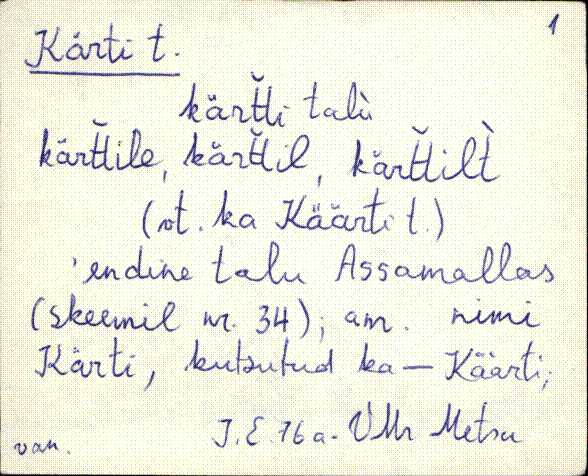 1
Kärti t.
kärt̆t̆i talù
kärt̆t̆ile, kärt̆t̆il, kärt̆t̆ilt̀
(vt. ka Käärti t.)
'endine talu Assamallas
(skeemil nr. 34); am. nimi
Kärti, kutsutud ka — Käärti;
van. J.E. 76 a. VMr Metsa